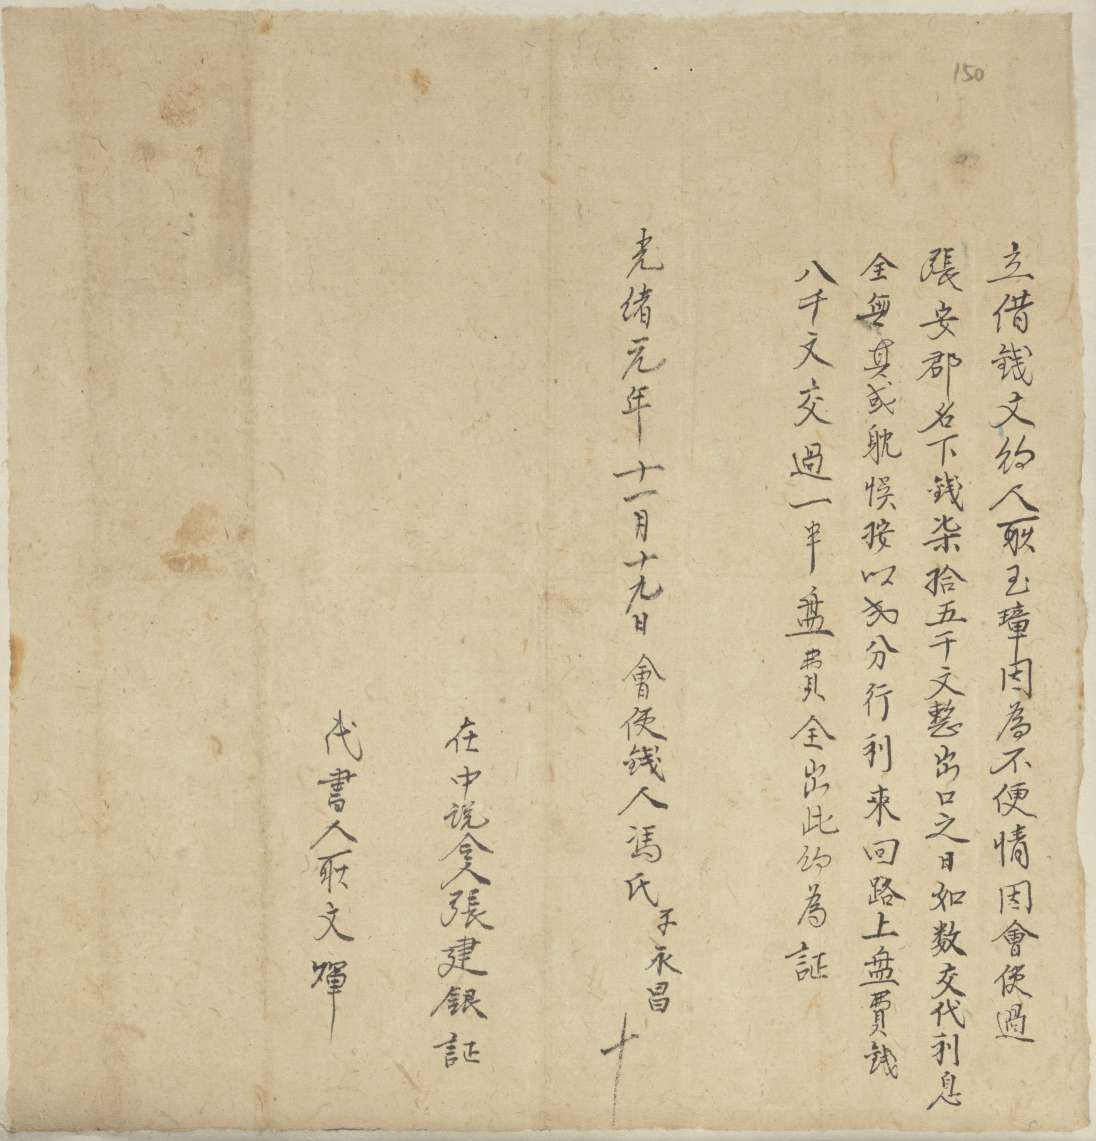 150
立借錢文約人耿玉璋因為不便情因會使過
張安郡名下錢柒拾五千文整出口之日如数交代利息
全無其或躭悮按以弍分行利来回路上盘費錢
八千文交過一半盘費全出此約為証
光绪元年十一月十九日會使錢人馮氏子永昌十
在中説合人張建銀証
代書人耿文輝